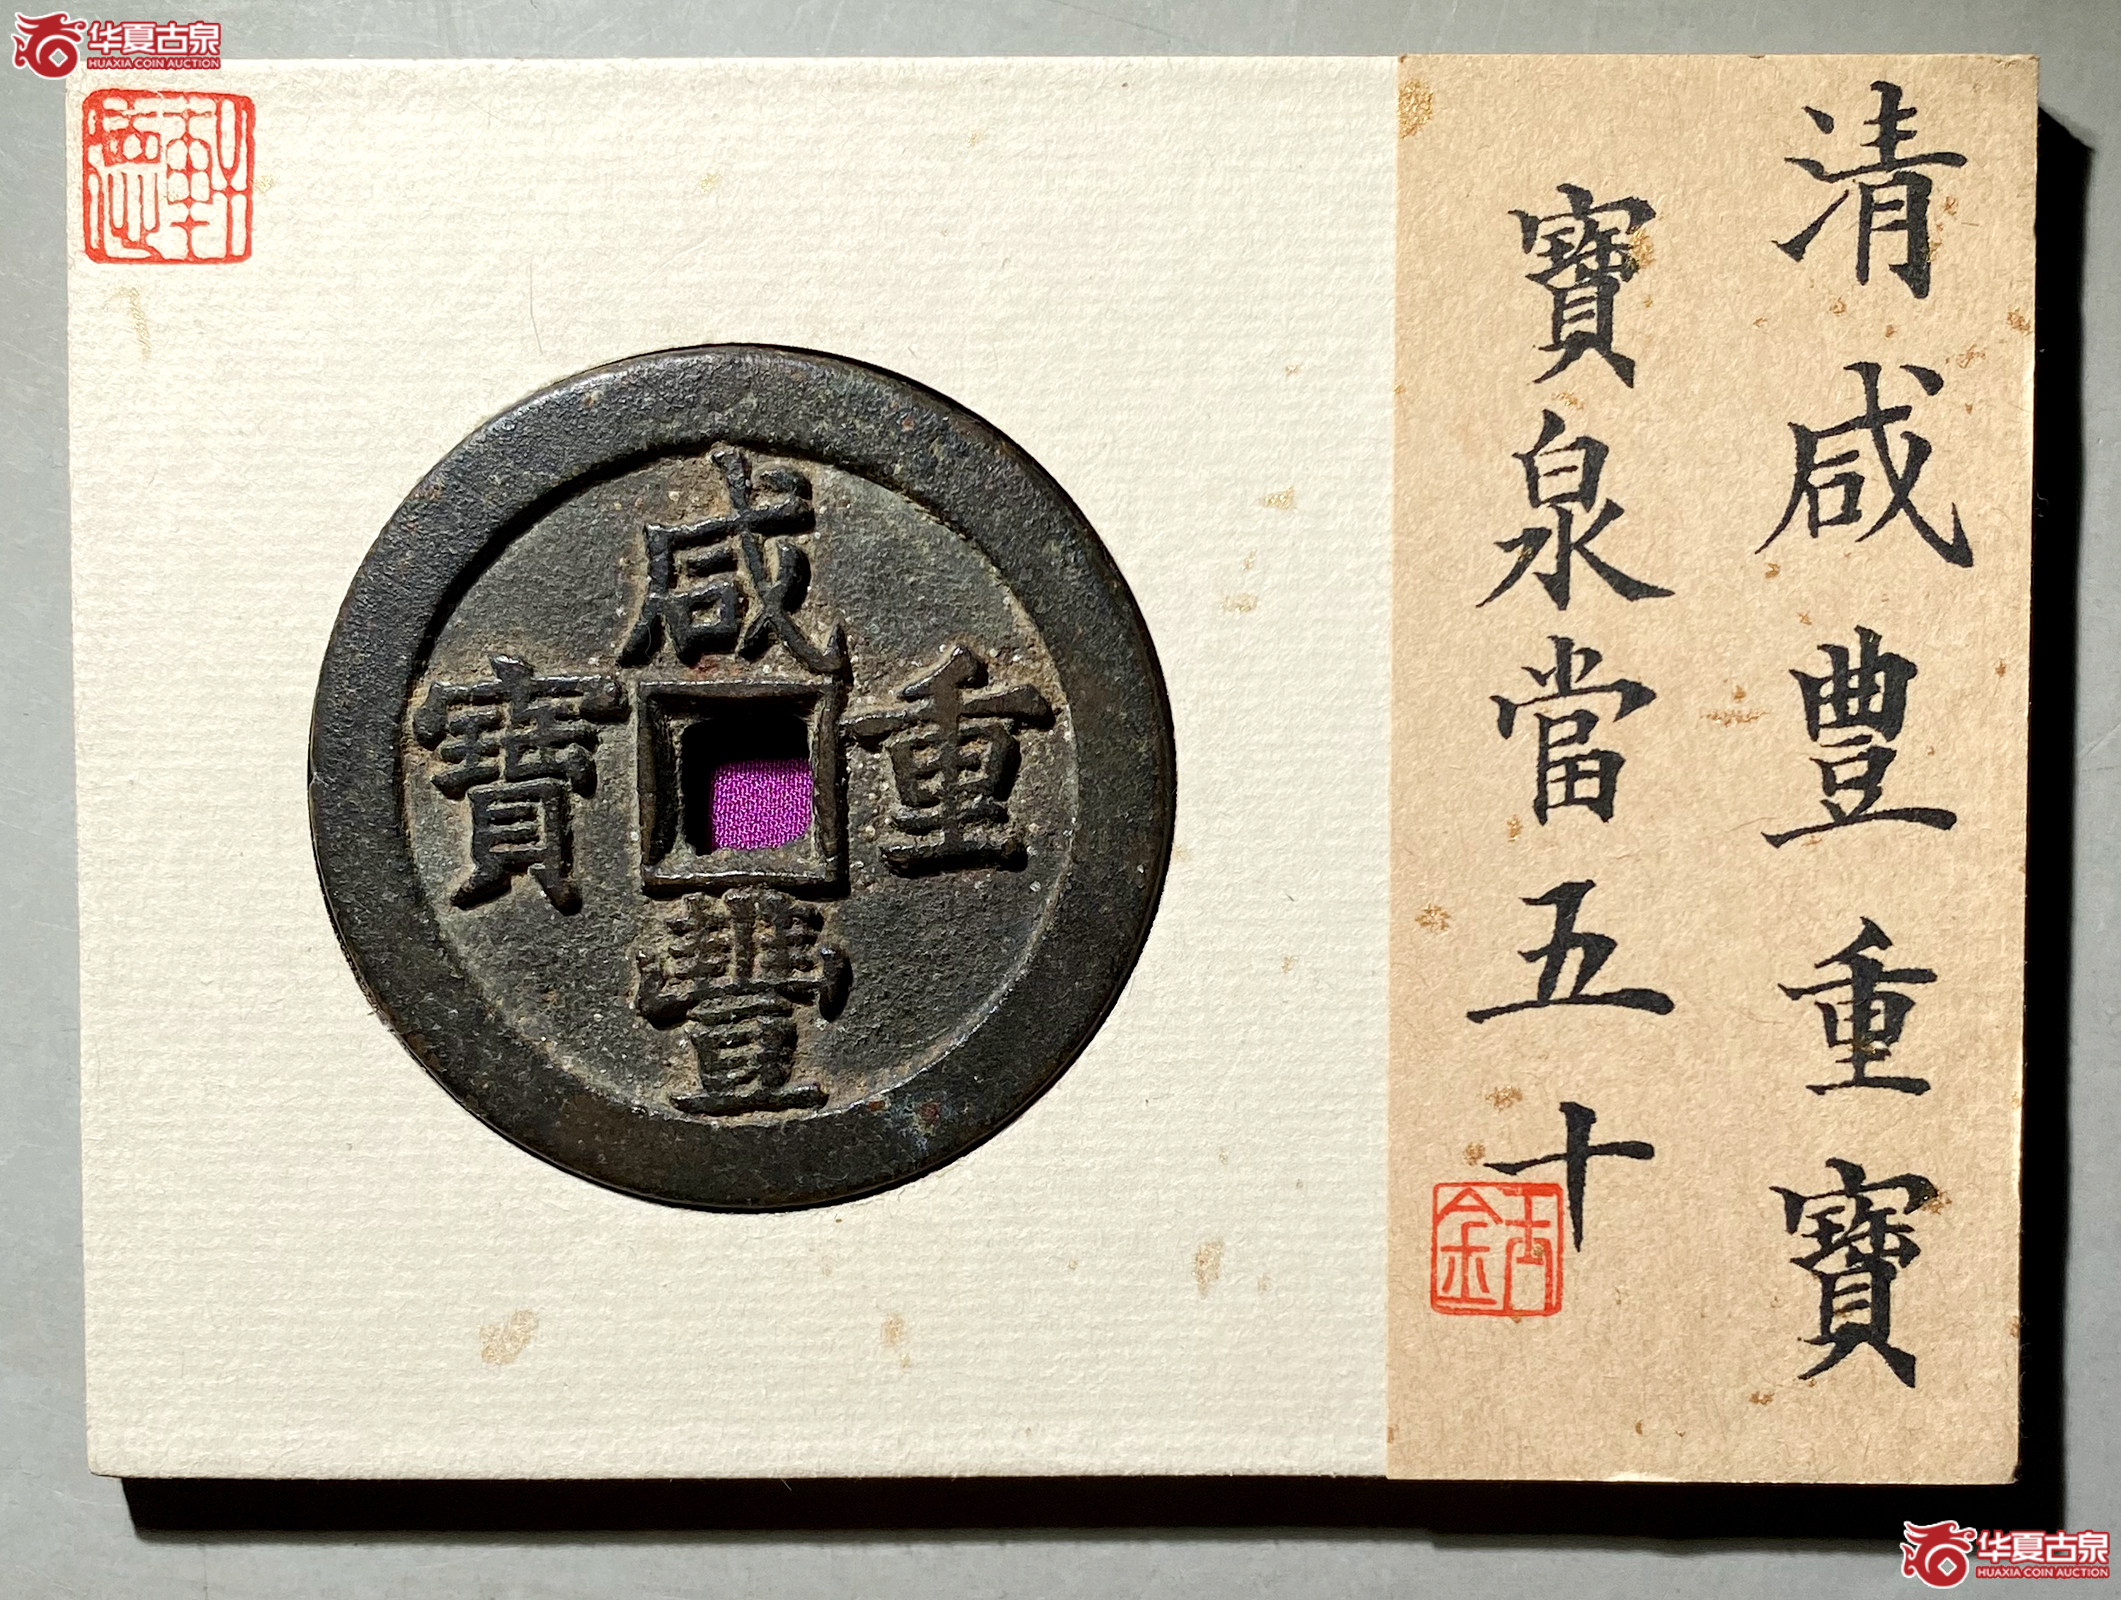 华夏古泉
HUAXIA COIN AUCTION
清咸豊重寶
寶泉當五十
咸豐重寶
华夏古泉
HUAXIA COIN AUCTION